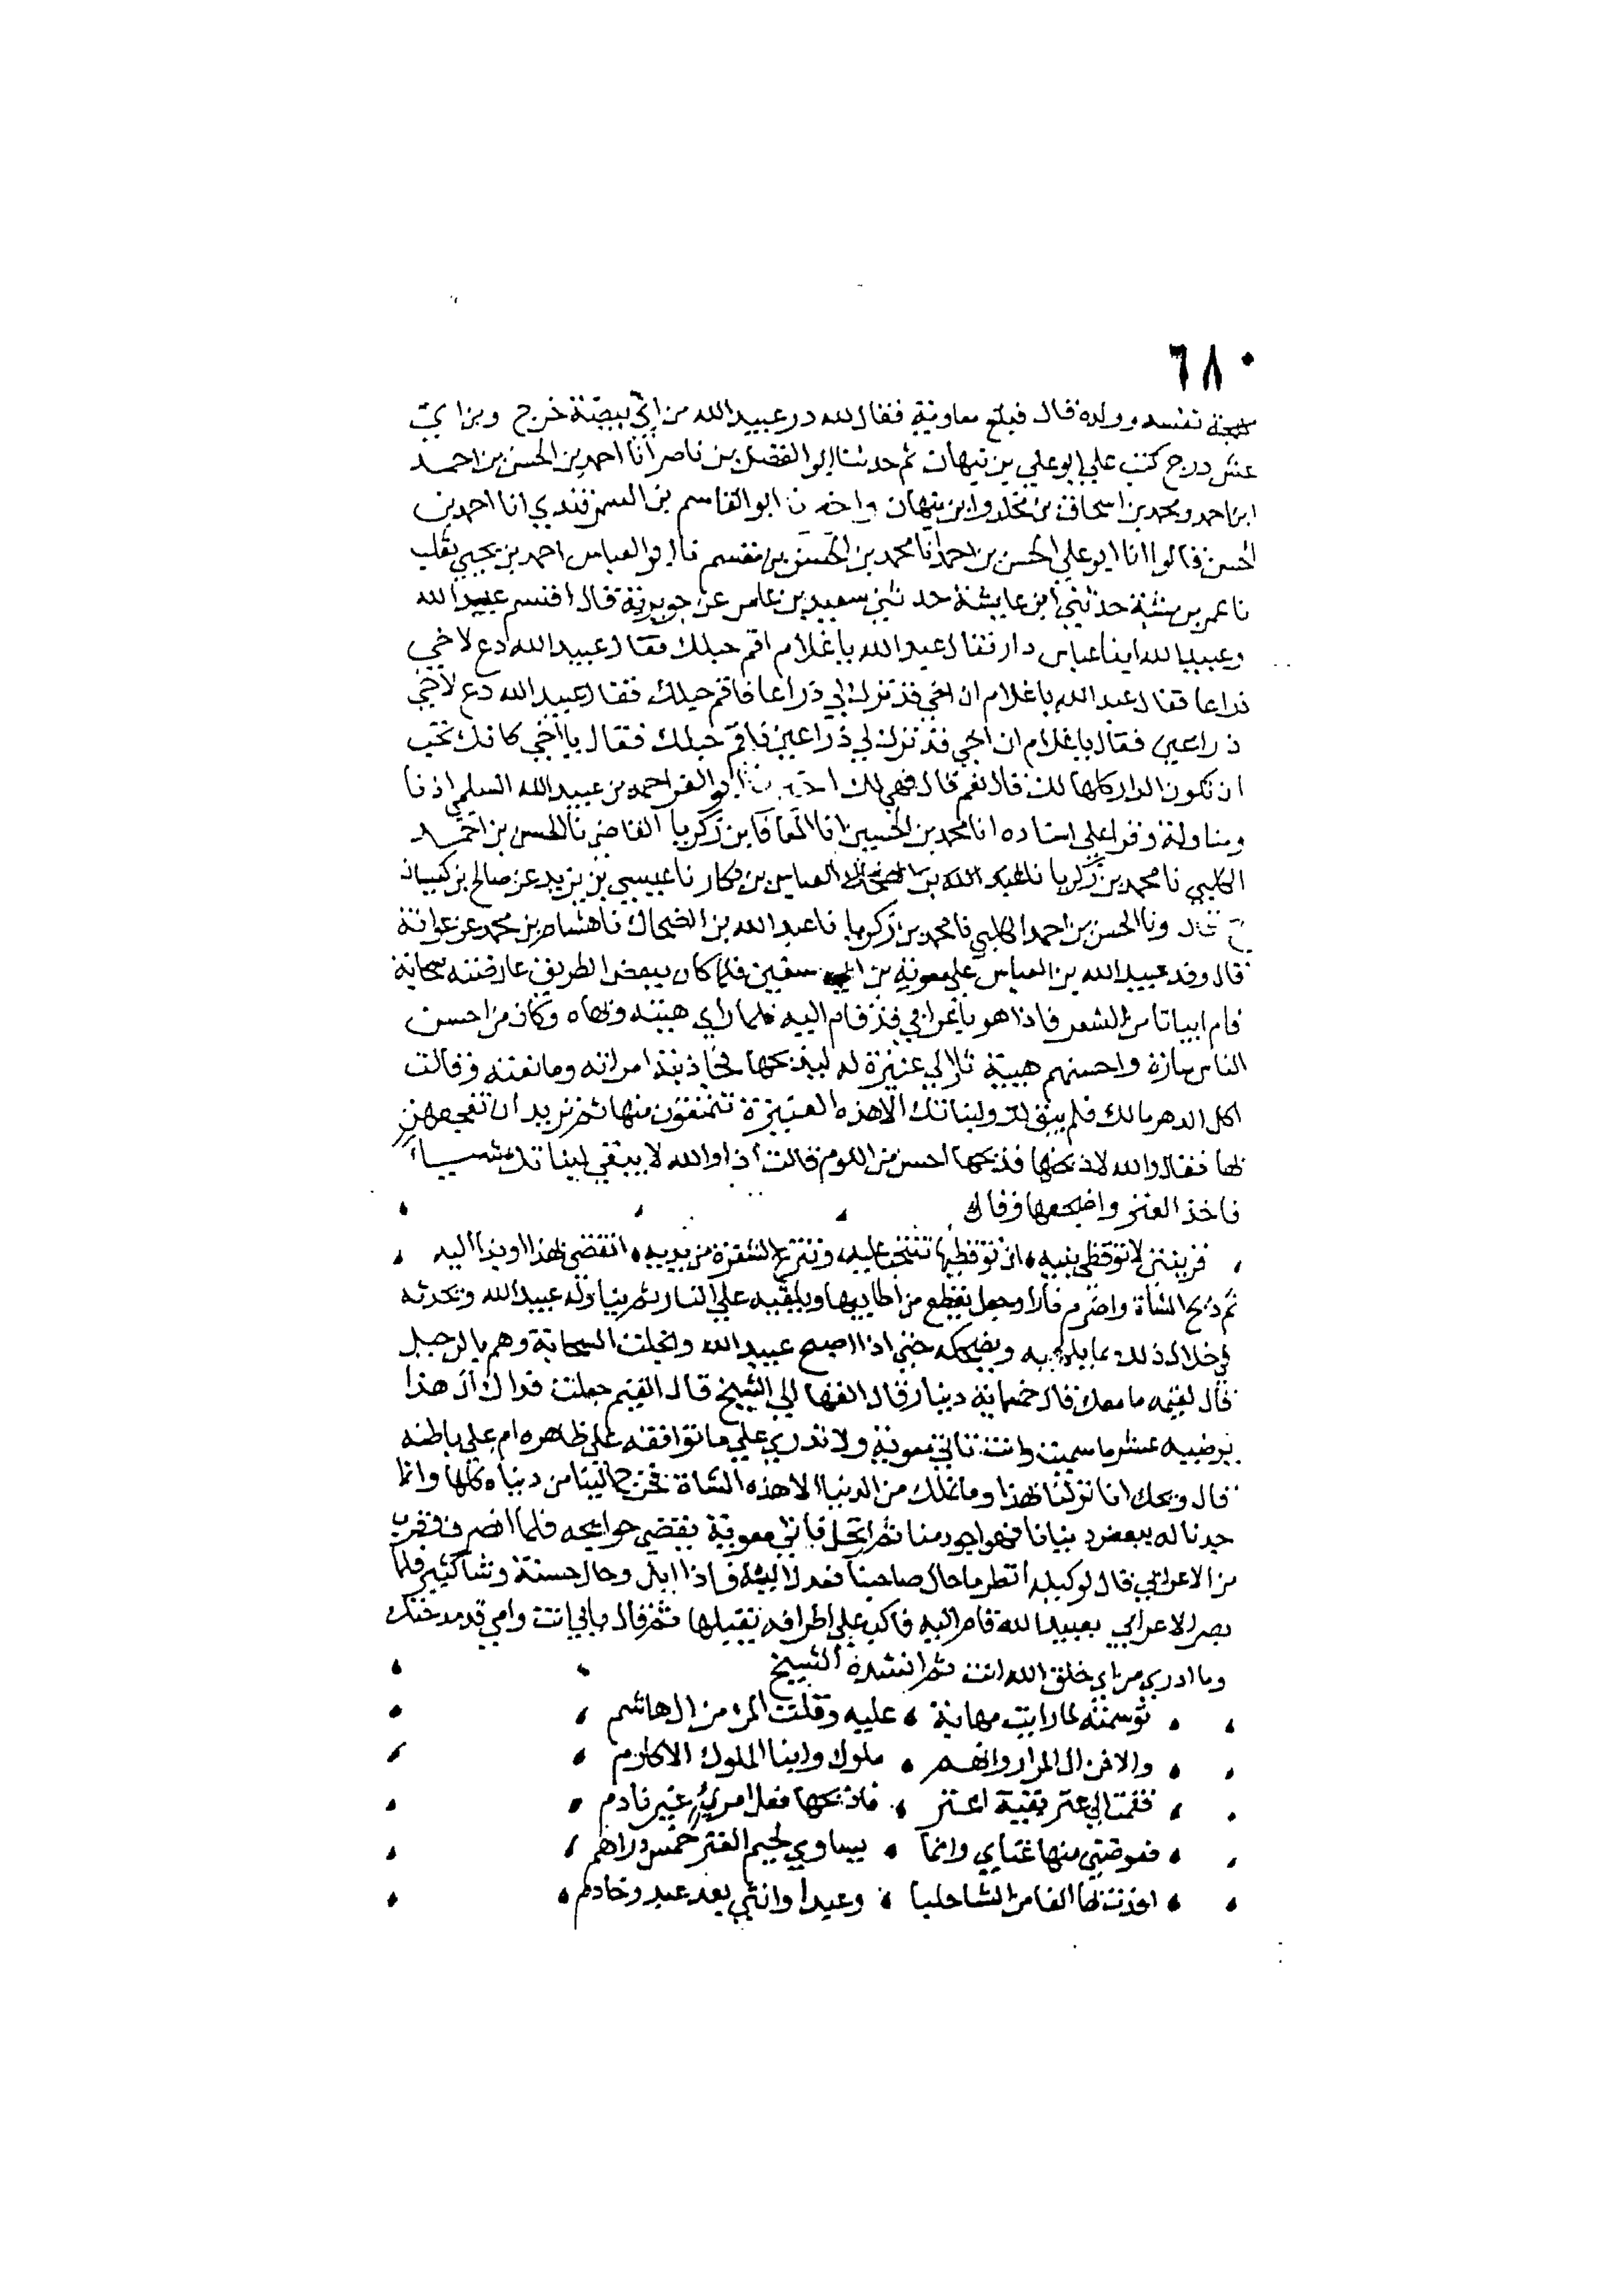 ٦٨٠
نفسه وولده قال فبلغ معاوية فقال لله در عبيد الله من اي بيضة خرج وبن اي
عش درج كتب علي ابو علي بن نبهان ثم حدثنا ابو الفضل بن ناصر أنا احمد بن الحسن بن احمد
ابن احمد ومحمد بن اسحاق بن مخلد وابن نبهان واخ نا ابو القاسم بن السمرقندي انا احمد بن
الحسن قالوا انا ابو علي الحسن بن احمد أنا محمد بن الحسن بن مقسم قال ابو العباس احمد بن يحيي ثعلب
نا عمر بن شبة حدثني ابن عايشة حدثني سعيد بن عامر عن جويرية قال اقتسم عبيد الله
وعبد الله ابنا عباس دار فقال عبد الله يا غلام اقم حبلك فقال عبيد الله دع لاخي
ذراعا فقال عبد الله يا غلام ان اخي قد ترك لي ذراعا فاقم حبلك فقال عبيد الله دع لاخي
ذراعين فقال يا غلام ان اخي قد ترك لي ذراعين فاقم حبلك فقال يا اخي كانك تحب
ان تكون الدار كلها لك قال نعم قال فهي لك ا نا ابو العز احمد بن عبيد الله السلمي اذنا
ومناولة وقرا علي اسناده انا محمد بن الحسين انا المعافا بن زكريا القاضي نا الحسن بن احمد
الكلبي نا محمد بن زكريا نا عبد الله بن الضحاك العباس بن بكار نا عيسي بن يزيد عن صالح بن كيسان
قال ونا الحسن بن احمد الكلبي نا محمد بن زكريا نا عبد الله بن الضحاك نا هشام بن محمد عن عوانة
قال وفد عبيد الله بن العباس علي معوية بن ابي سفين فلما كان ببعض الطريق عارضته سحابة
فام ابياتا من الشعر فاذا هو باعرابي قد قام اليه فلما راي هيئته وبهاه وكان من احسن
الناس شارة واحسنهم هيئة قام الي عنيزة له ليذبحها فجاذبته امراته ومانعته وقالت
اكل الدهر مالك فلم يبق لك ولبناتك الا هذه العنيزة تتمتعون منها ثم تريد ان تفجعهن
بها فقال والله لاذبحنها فذبحها احسن من اللوم قالت اذا والله لا يبقي لبناتك شيئا
فاخذ العنز واضجعها وقال
قرينتي لا توقظي بنيه ، ان توقظيها تنتحب عليه ، وتنزع الشفرة من يديه ، ابغض بهذا او بذا اليه
ثم ذبح الشاة واضرم نارا وجعل يقطع من اطايبها ويلقيه علي النار ثم يناوله عبيد الله ويحدثه
في خلال ذلك بما يلهيه ويضحكه حتي اذا اصبح عبيد الله وانجلت السحابة وهم بالرحيل
قال لقيمه ما معك قال خمسماية دينار قال القها الي الشيخ قال القيم جعلت فداك ان هذا
يرضيه عشر ما سميت وانت تاتي معوية ولا تدري علي ما توافقه علي ظاهره ام علي باطنه
قال ويحك انا نزلنا بهذا وما يملك من الدنيا الا هذه الشاة فخرج الينا من دنياه كلها وانما
جدنا له ببعض دنيانا فهو اجود منا ثم ارتحل فاتي معوية يقضي حوايجه فلما انصرف فقرب
من الاعرابي قال لوكيله انظر ما حال صاحبنا فعدل اليه فاذا ابل وحال حسنة وشا كثير فلما
بصر الاعرابي بعبيد الله قام اليه فاكب علي اطرافه يقبلها ثم قال بابي انت وامي قد مدحتك
وما ادري من اي خلق الله انت ثم انشده الشيخ
توسمته لما رايت مهابة ، عليه وقلت المر من ال هاشم
والا فمن ال المرار وانهم ، ملوك وابنا الملوك الاكارم
فقمت الي عنز بقية اعنز ، فاذبحها فعل امرئ غير نادم
فعوضني منها غناي وانما ، يساوي لحيم العنز خمس دراهم
افدت بها الفا من الشا حلبا ، وعبدا وانثي بعد عبد وخادم